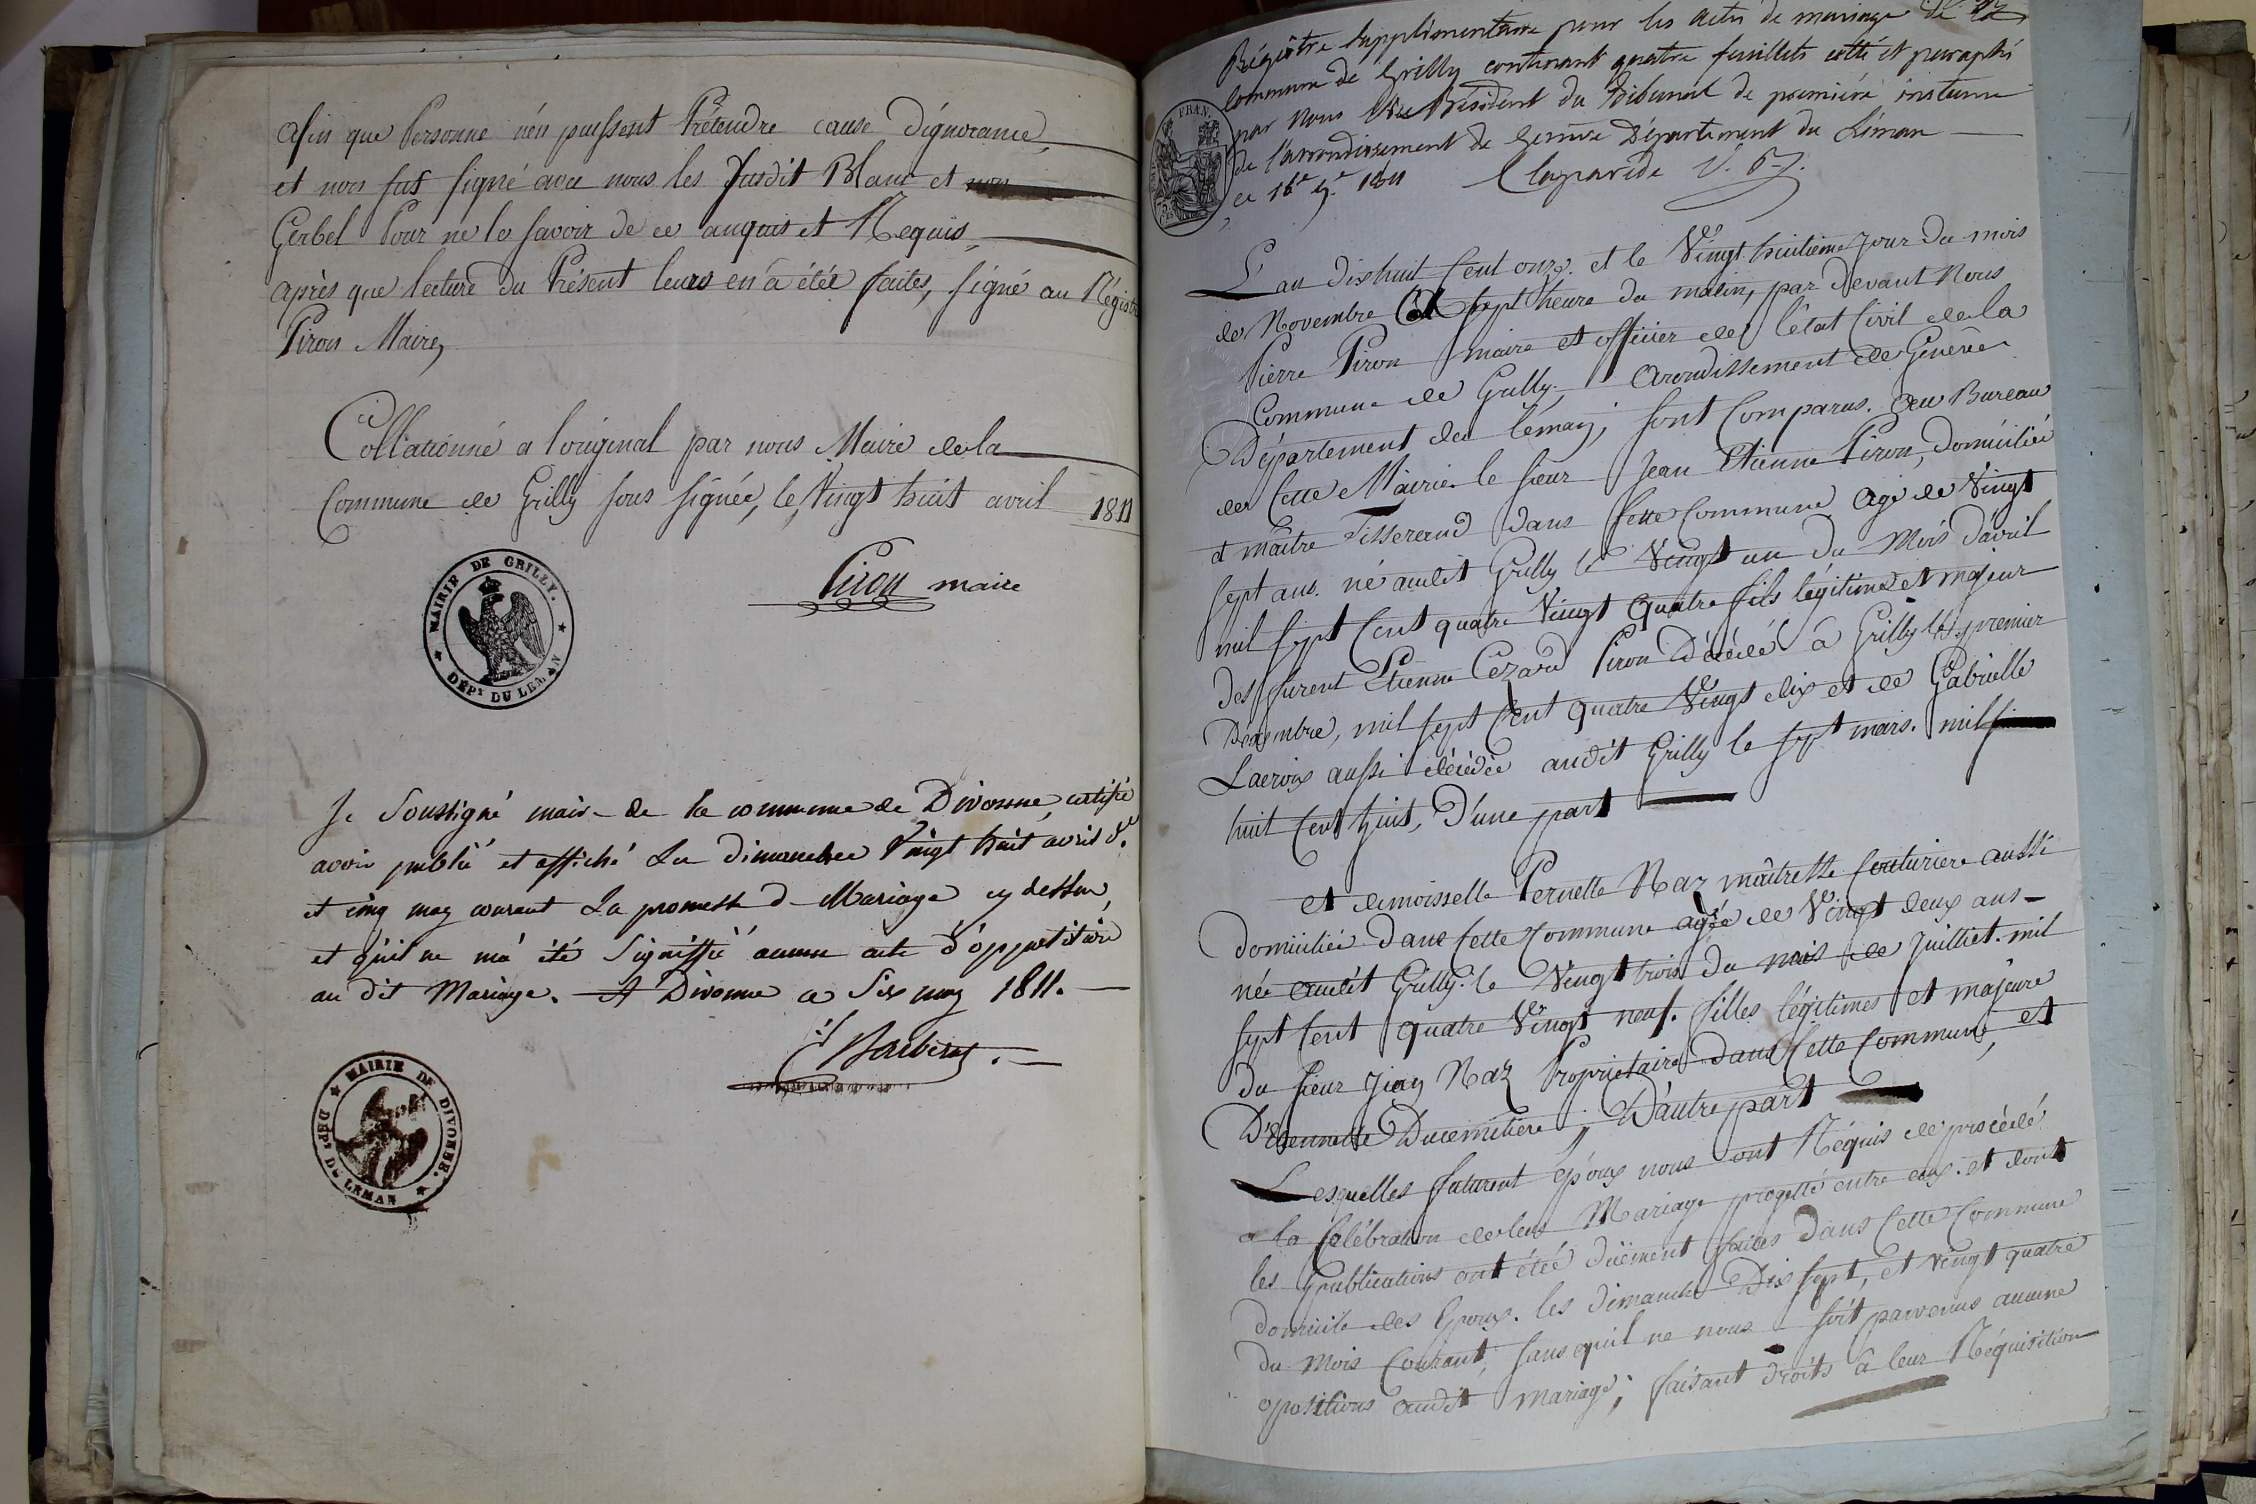 afin que Personne n'en puissent Prétendre cause d'ignorance,
et nous fut signé avec nous les Susdit Blanc et non
Gerbel Pour ne le savoir de ce anquis et Requis,
après que lecture du Présent leurs en a étée faites, signé au Régistre
Piron Maire,
Collationné a l'original par nous Maire de la
Commune de Grilly sous signée, le Vingt huit avril 1811
Piron maire
MAIRIE DE GRILLY.
DÉPt DU LEMAN
Je Soussigné maire de la commune de Divonne, certifie
avoir publié et affiché Les dimanche Vingt huit avril d.
et cinq may courant La promesse de Mariage cy dessus,
et qu'il ne m'a été Signiffié aucun acte d'oppostition
au dit Mariage. A Divonne ce Six may 1811.
MAIRIE DE DIVONNE.
DÉPt DU LEMAN
Régistre supplémentaire pour les actes de mariage de la
Commune de Grilly contenant quatre feuillets coté et paraphé
par nous Vice Président du Tribunal de première instance
de l'arrondissement de Genève Département du Léman
ce 16e 9.e 1811 Claparède V. P.
FRAN.
L'an dixhuit Cent onze. et le Vingt huitième jour du mois
de Novembre à sept heure du matin, par devant Nous
Pierre Piron maire et officier de l'état Civil de la
Commune de Grilly, Arondissement de Genève
Département du léman, sont Comparus. au Bureau
de Cette Mairie le sieur Jean Etienne Piron, domiciliée
et maître Tisserand dans Cette Commune Agé de Vingt
sept ans. né audit Grilly le Vingt un du Mois d'avril
mil sept Cent quatre Vingt quatre fils légitime et majeur
des furent Etienne Cezard Piron Décédé à Grilly le premier
Décembre, mil sept Cent quatre Vingt dix et de Gabrielle
Lacroix aussi décédée audit Grilly le sept mars. mil
huit Cent huit, D'une part
et demoisselle Pernette Naz maîtresse Couturiere aussi
domiciliée dans Cette Commune agée de Vingt deux ans
née audit Grilly. le Vingt trois du mois de Juilliet. mil
sept Cent quatre Vingt neuf. filles légitimes et majeure
du sieur Jean Naz Propriétaire dans Cette Commune, et
D'Etiennette Ducimetière, D'autre part
Lesquelles futurent époux nous ont Réquis de procédé
a la Célébration de leur Mariage progetté entre eux. et dont
les publications ont étéé duëment faites dans Cette Commune
domicile des Epoux. les dimanche Dix sept, et vingt quatre
du mois Courant, sans qu'il ne nous soit parvenus aucune
opositions audit Mariage, faisant droits à leur Réquisition